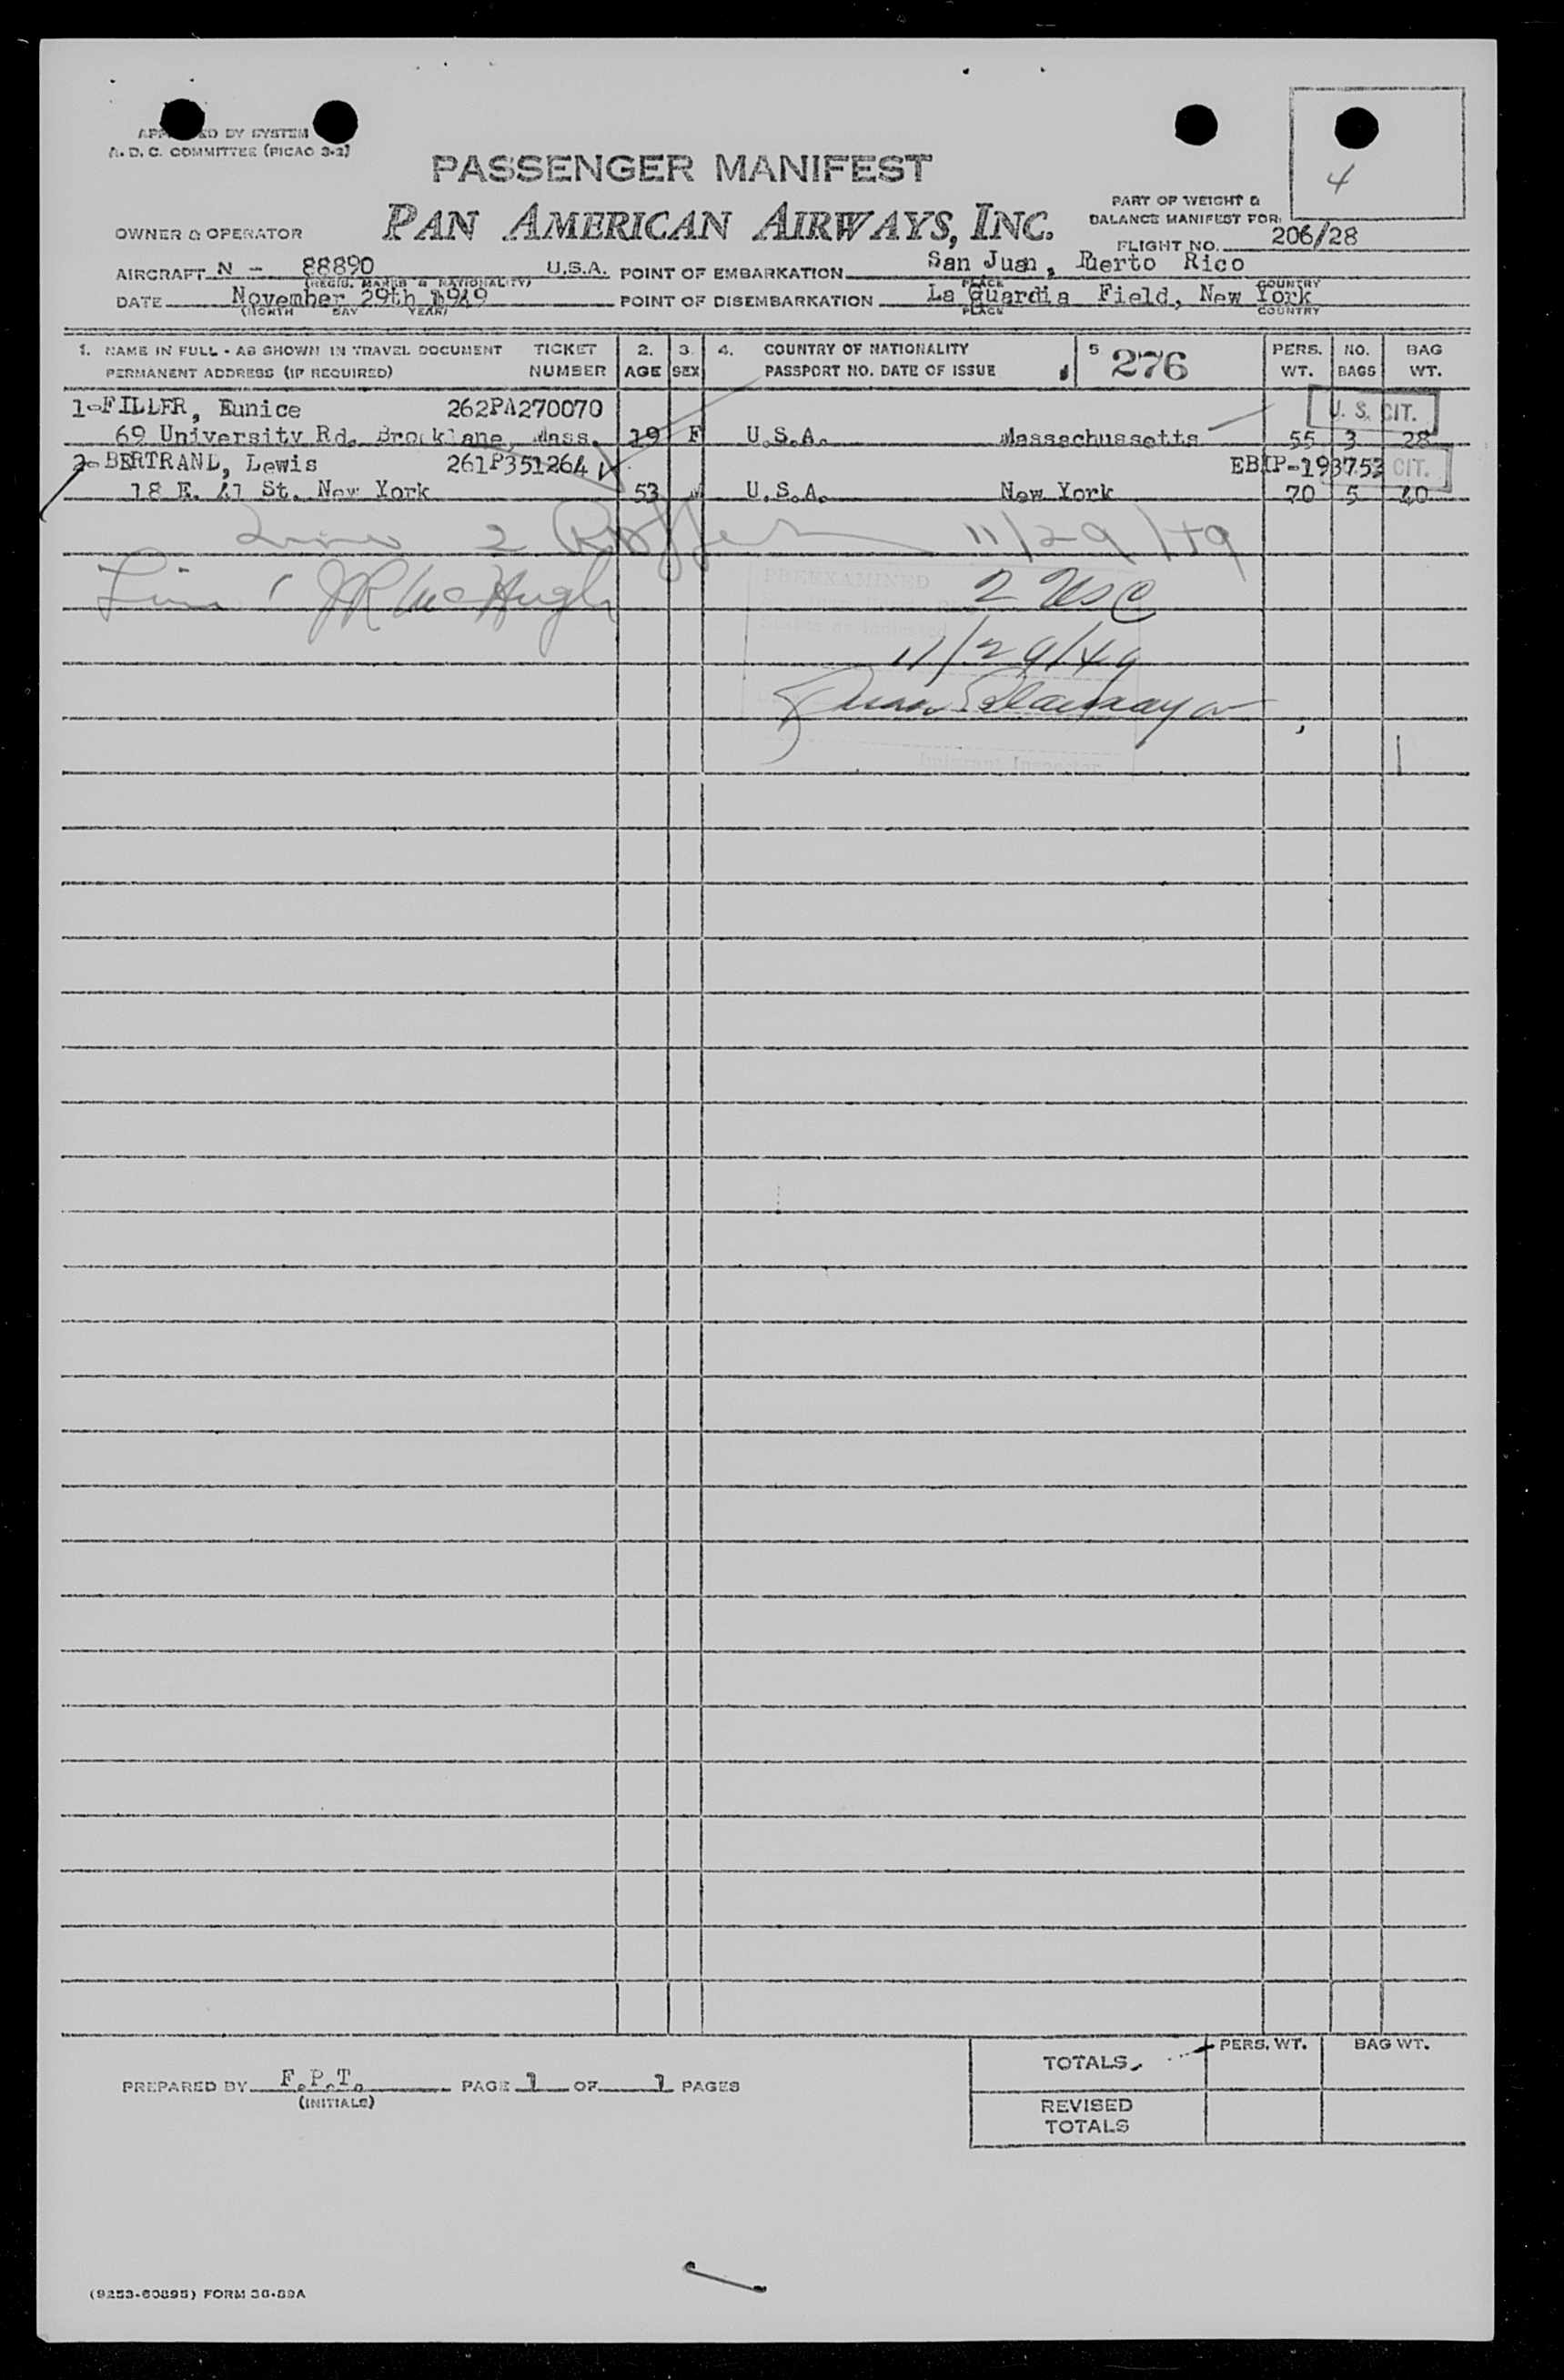 4
APP ED BY SYSTEM
A. D. C. COMMITTEE (PICAO 3-2)
PASSENGER MANIFEST
PAN AMERICAN AIRWAYS, INC.
PART OF WEIGHT &
BALANCE MANIFEST FOR:
OWNER & OPERATOR
FLIGHT NO. 206/28
AIRCRAFT N - 88890 U.S.A. POINT OF EMBARKATION San Juan, Puerto Rico
(REGIS. MARKS & NATIONALITY) PLACE COUNTRY
DATE November 29th 1949 POINT OF DISEMBARKATION La Guardia Field, New York
(MONTH DAY YEAR) PLACE COUNTRY
1. NAME IN FULL - AS SHOWN IN TRAVEL DOCUMENT TICKET 2. 3. 4. COUNTRY OF NATIONALITY 5 276 PERS. NO. BAG
PERMANENT ADDRESS (IF REQUIRED) NUMBER AGE SEX PASSPORT NO. DATE OF ISSUE WT. BAGS WT.
1-FILLER, Eunice 262PA270070 U. S. CIT.
69 University Rd. Brooklane, Mass. 19 F U.S.A. Massachussetts 55 3 28
2- BERTRAND, Lewis 261P351264 EBIP-193753 CIT.
18 E. 41 St. New York 53 M U.S.A. New York 70 5 40
2 11/29/49
Line 1 JR McHugh PREEXAMINED 2 USC
11/29/49
Juan
Immigrant Inspector
TOTALS PERS. WT. BAG WT.
PREPARED BY F.P.T. PAGE 1 OF 1 PAGES
(INITIALS)
REVISED
TOTALS
(9253-60895) FORM 36-89A